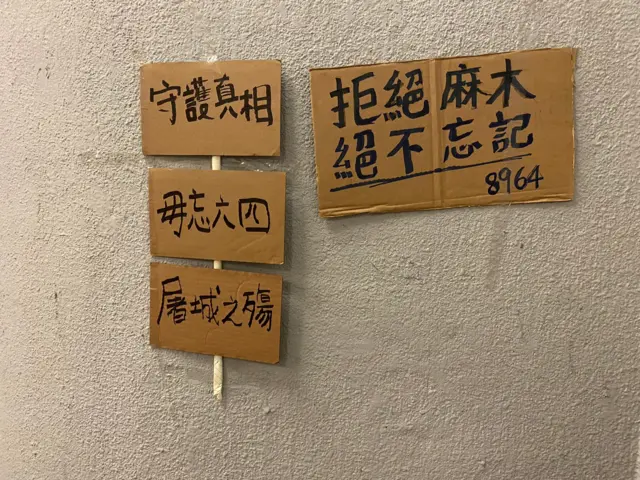 守護真相
毋忘六四
屠城之殤
拒絕麻木
絕不忘記
8964